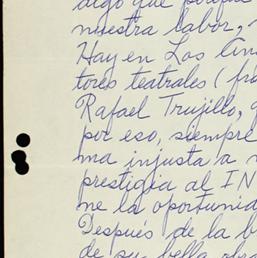 algo que porque
nuestra labor,
Hay en Los Áng
tores teatrales (fra
Rafael Trujillo, q
por eso, siempre
ma injusta a
prestigia al IN
ne la oportunida
Después de la b
de su bella obra